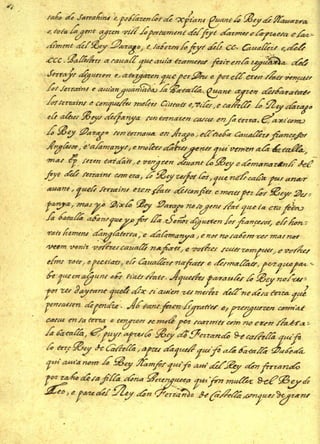 saho de Sarrahins e poblarenlos de xpians Quant lo Rey de Nauarra
e tota la gent agren vist lo portament del foyt darmes e la presa e lar-
diment del Rey Darago, e saberen lo foyt dels .CC. Caualleris, e dels
CCC. Ballesters a cauall que auia tramesos ferir en la reguarda dels
Serrayns digueren e atorgaren que per Deu e per ell eren stats vençuts
los Serrains e auian guanyada la Batalla. Quant agren desbaratats
los serrains e conquestes moltes Ciutats e Viles, e castells lo Rey darago
els altres Reys despanya sen tornaren cascu en sa terra. E axi com
lo Rey Darago sen tornaua en Arago, ell troba Cauallers francesos
Anglesos, e alamanys, e moltes daltres gents qui venien ala batalla,
mas ja seren tardats, e vengren deuant lo Rey e demanaren li del
foyt dels serrains com era, lo Rey respos los, que nols calia pus anar
auant, quels serrains eren stats desconfits e morts per los Reys Des-
panya, mas yo Dix lo Rey Darago no se gens stat que ia era feta
la batalla abans que yo fos lla. Senyors digueren los francesos, e los hon-
rats homens danglaterra, e dalamanya, e nos no sabem res mas nos
veem venir vostres caualls nafrats, e vostres scuts romputs, e vostres
elms rots, e peciats, e los Cauallers nafrats e desmallats, per que par
be que en algune obs siats stats. Aquestes paraules lo Rey nols res-
pos res dayuant quels dix si auien res mester dell ne de sa terra que
pensassen de pendre. Ab tant feren li gracies e prengueren comiat
cascu en sa terra e tengeren se molt per scarnits com no eren stats a
la batalla, E puys apres lo Rey don Ferrando de castella qui fo
lo terç Rey de Castella, apres daquell qui fo ala batalla Dubeda
qui auia nom lo Rey Namfos qui fo auі del Rey don ferrando
per raho de sa filla dona Berenguera qui fon muller del Rey de
Leo, e pare del Rey don Ferrando de Castella conques de gran